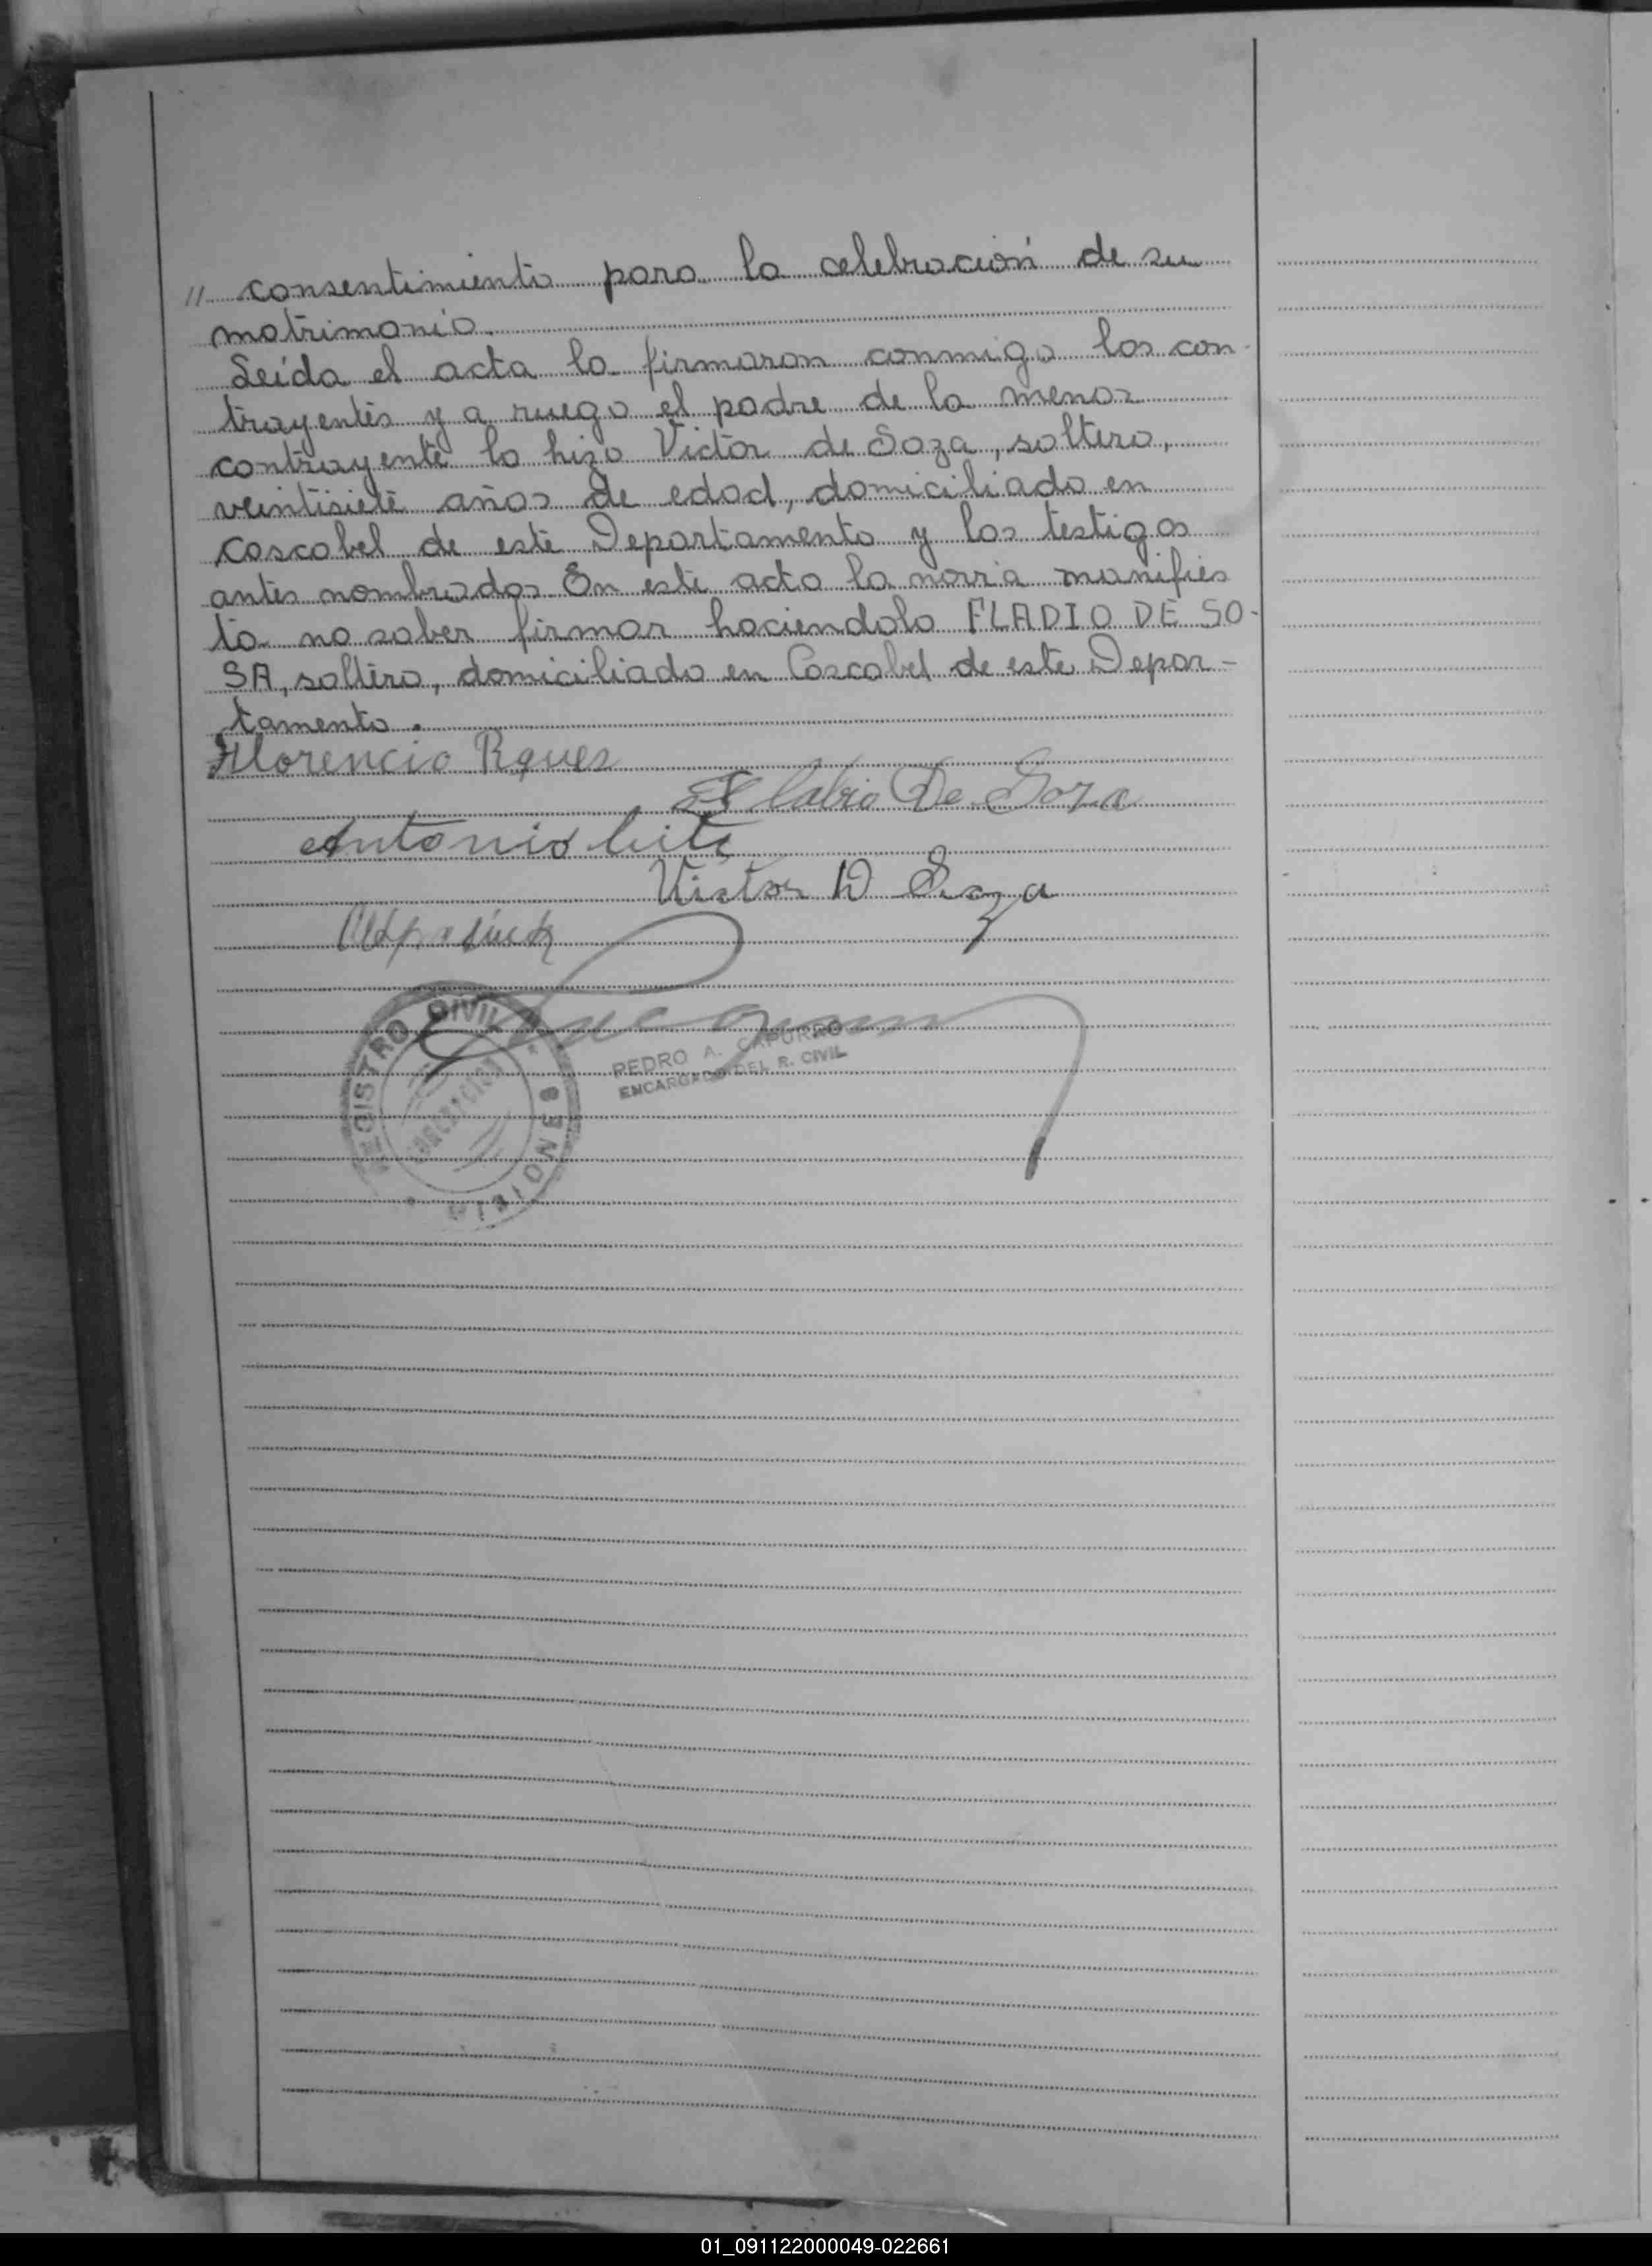 // consentimiento para la celebración de su
matrimonio.
Leída el acta la firmaron conmigo los con-
trayentes y a ruego el padre de la menor
contrayente lo hizo Victor de Soza, soltero,
veintisiete años de edad, domiciliado en
Coscobel de este Departamento y los testigos
antes nombrados En este acto la novia manifies
ta no saber firmar haciendolo FLADIO DE SO-
SA, soltero, domiciliado en Coscobel de este Depar-
tamento.
Florencio Rques
De Soza
Antonio
Victor D Soza
REGISTRO CIVIL
MISIONES
PEDRO A. CAPURRO
ENCARGADO DEL R. CIVIL
01_091122000049-022661